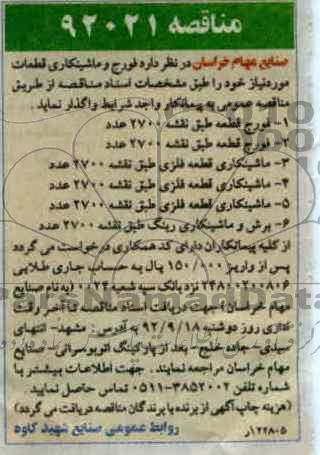 مناقصه ۹۲۰۲۱
صنایع مهام خراسان در نظر دارد فورج و ماشینکاری قطعات
موردنیاز خود را طبق مشخصات اسناد مناقصه از طریق
مناقصه عمومی به پیمانکار واجد شرایط واگذار نماید.
۱- فورج قطعه طبق نقشه ۲۷۰۰ عدد
۲- فورج قطعه طبق نقشه ۲۷۰۰ عدد
۳- ماشینکاری قطعه فلزی طبق نقشه ۲۷۰۰ عدد
۴- ماشینکاری قطعه فلزی طبق نقشه ۲۷۰۰ عدد
۵- ماشینکاری قطعه فلزی طبق نقشه ۲۷۰۰ عدد
۶- برش و ماشینکاری رینگ طبق نقشه ۲۷۰۰ عدد
از کلیه پیمانکاران دارای کد همکاری درخواست می گردد
پس از واریز ۱۵۰/۰۰۰ ریال به حساب جاری طلایی
۲۴۸۰۰۲۰۰۸۰۶ نزد بانک سپه شعبه ۰۰۲۴ (به نام صنایع
مهام خراسان) جهت دریافت اسناد مناقصه تا آخر وقت
اداری روز دوشنبه ۹۲/۹/۱۸ به آدرس: مشهد- انتهای
سیدی- جاده خلج- بعد از پارکینگ اتوبوسرانی- صنایع
مهام خراسان مراجعه نمایند. جهت اطلاعات بیشتر با
شماره تلفن ۳۸۵۲۰۰۲-۰۵۱۱ تماس حاصل نمایید.
(هزینه چاپ آگهی از برنده یا برندگان مناقصه دریافت می گردد)
روابط عمومی صنایع شهید کاوه
۱۲۲۸۰۵/ر